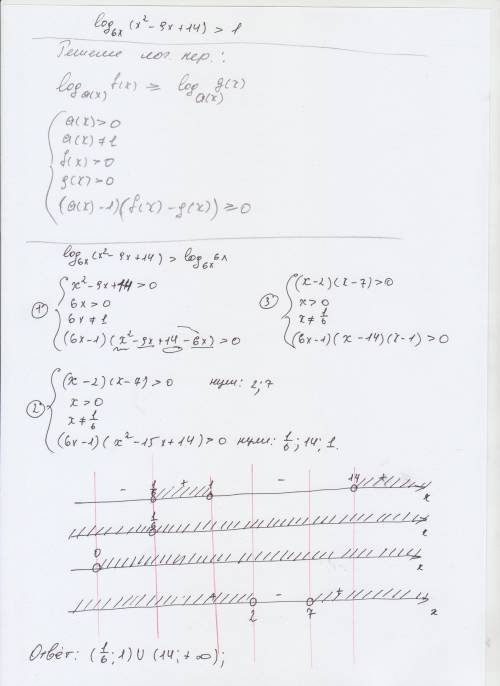 log₆ₓ (x² - 9x + 14) > 1
Решение лог. нер.:
log_a(x) f(x) ≥ log_a(x) g(x)
{ a(x) > 0
a(x) ≠ 1
f(x) > 0
g(x) > 0
(a(x) - 1)(f(x) - g(x)) ≥ 0
log₆ₓ (x² - 9x + 14) > log₆ₓ 6x
① { x² - 9x + 14 > 0
6x > 0
6x ≠ 1
(6x - 1)(x² - 9x + 14 - 6x) > 0
② { (x - 2)(x - 7) > 0 нули: 2; 7
x > 0
x ≠ 1/6
(6x - 1)(x² - 15x + 14) > 0 нули: 1/6; 14; 1.
③ { (x - 2)(x - 7) > 0
x > 0
x ≠ 1/6
(6x - 1)(x - 14)(x - 1) > 0
- 1/6 + 1 - 14 + x
1/6 x
0 x
+ 2 - 7 + x
Ответ: (1/6; 1) ∪ (14; + ∞);